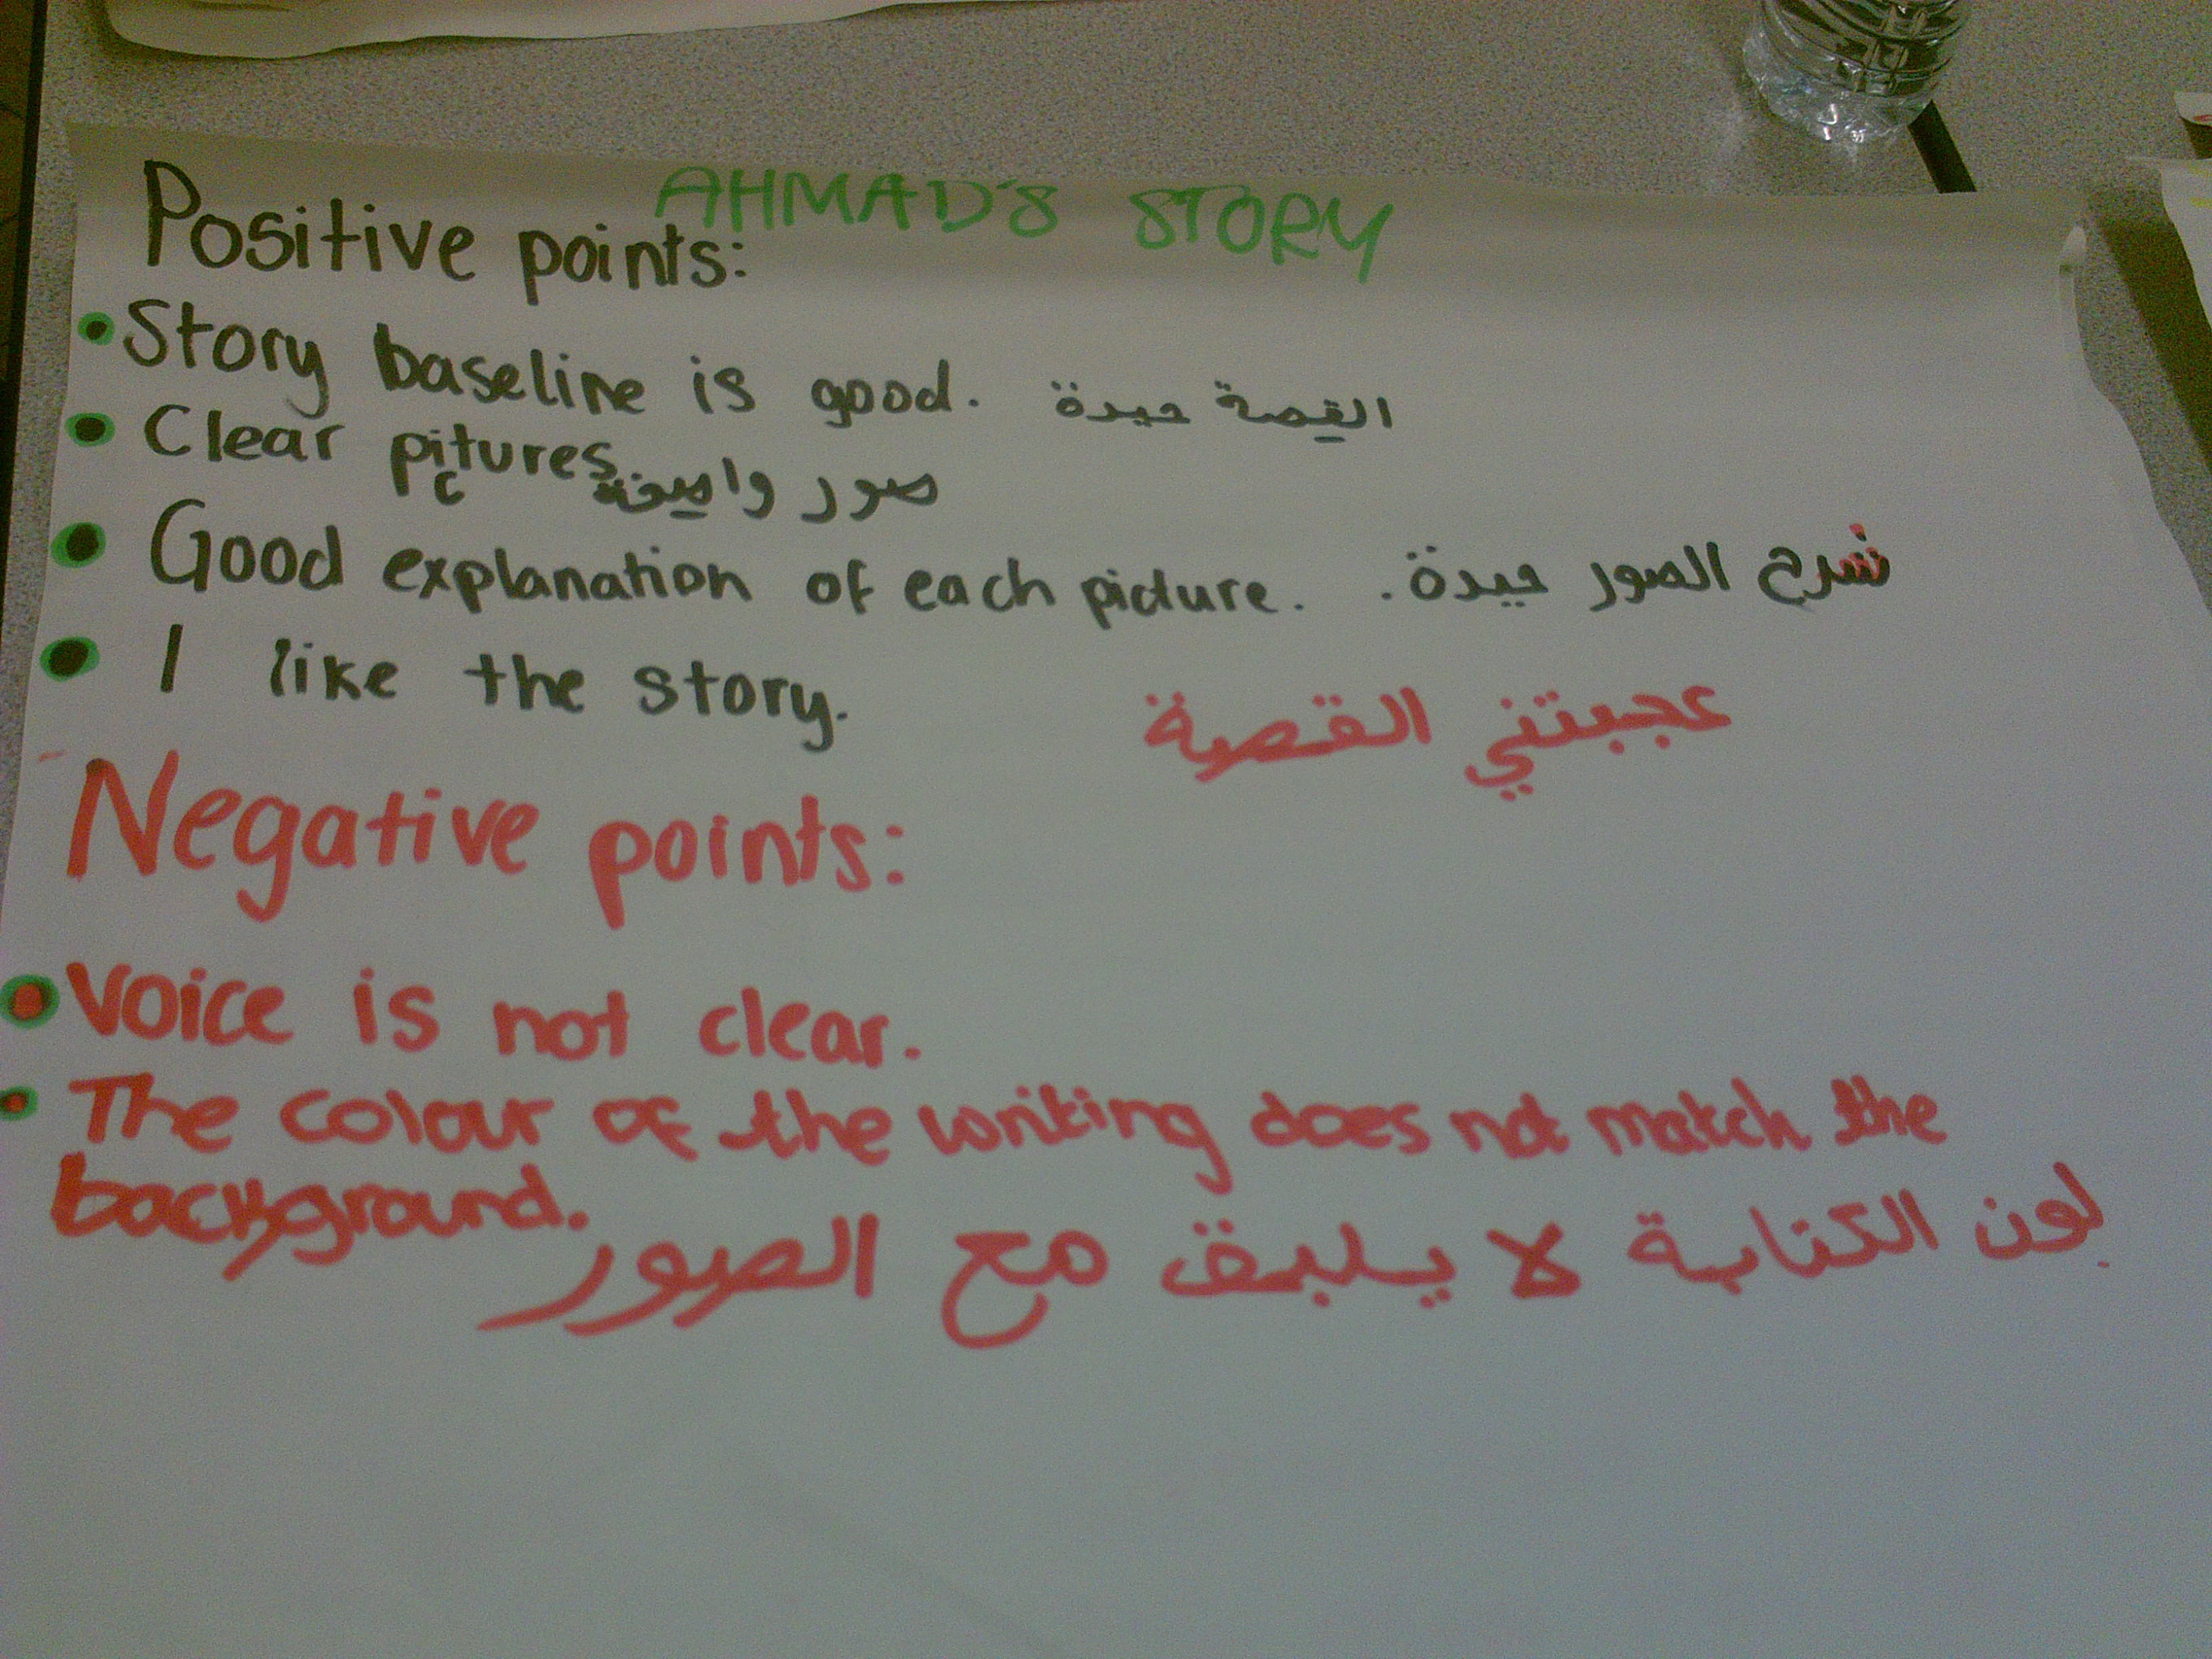 AHMAD'S STORY
Positive points:
• Story baseline is good. القصة جيدة
• Clear pictures. صور واضحة
• Good explanation of each picture. شرح الصور جيدة.
• I like the story. عجبتني القصة
Negative points:
• Voice is not clear.
• The colour of the writing does not match the
background. لون الكتابة لا يليق مع الصور